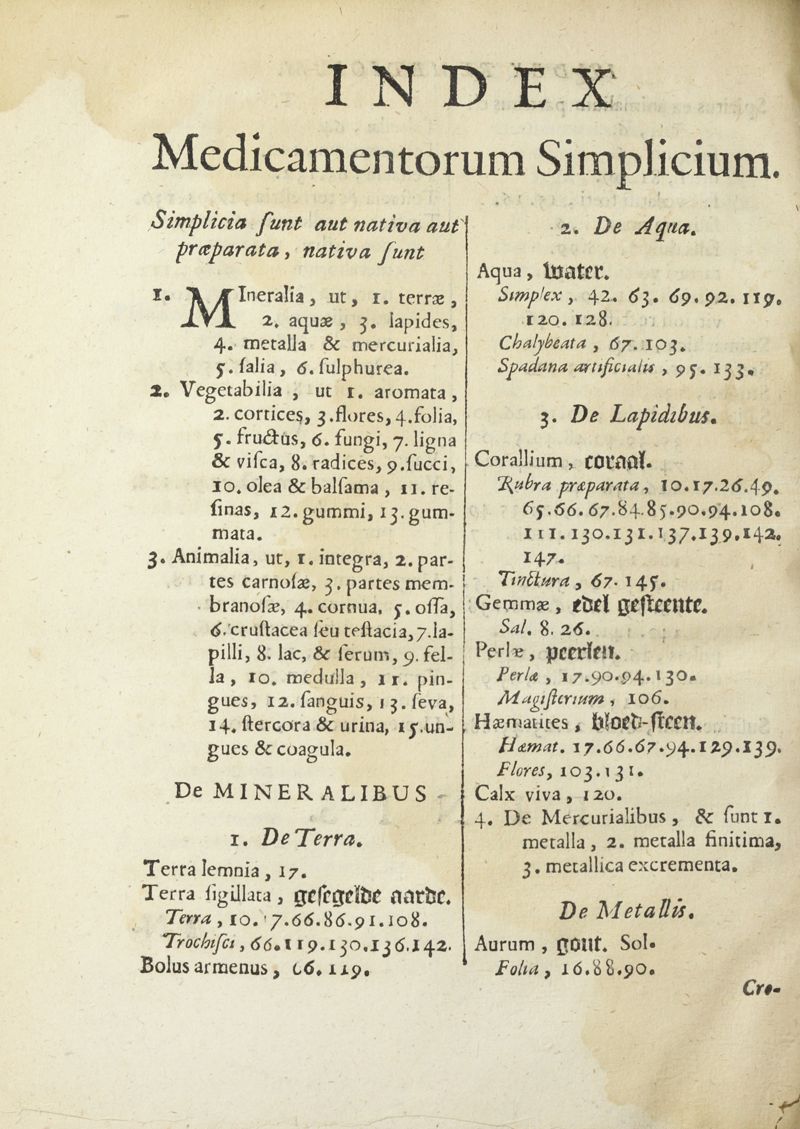 INDEX
Medicamentorum Simplicium.
Simplicia ſunt aut nativa aut
præparata, nativa ſunt
1. MIneralia, ut, 1. terræ,
2. aquæ, 3. lapides,
4. metalla & mercurialia,
5. ſalia, 6. ſulphurea.
2. Vegetabilia, ut 1. aromata,
2. cortices, 3. flores, 4. folia,
5. fructus, 6. fungi, 7. ligna
& viſca, 8. radices, 9. ſucci,
10. olea & balſama, 11. re-
ſinas, 12. gummi, 13. gum-
mata.
3. Animalia, ut, 1. integra, 2. par-
tes carnoſæ, 3. partes mem-
branoſæ, 4. cornua, 5. oſſa,
6. cruſtacea ſeu teſtacia, 7. la-
pilli, 8. lac, & ſerum, 9. fel-
la, 10. medulla, 11. pin-
gues, 12. ſanguis, 13. ſeva,
14. ſtercora & urina, 15. un-
gues & coagula.
De MINERALIBUS
1. De Terra.
Terra lemnia, 17.
Terra ſigillata, geſegelde aarde.
Terra, 10. 17. 66. 86. 91. 108.
Trochiſci, 66. 119. 130. 136. 142.
Bolus armenus, 66. 119.
2. De Aqua.
Aqua, water.
Simplex, 42. 63. 69. 92. 119.
120. 128.
Chalybeata, 67. 103.
Spadana artificialis, 95. 133.
3. De Lapidibus.
Corallium, coraal.
Rubra præparata, 10. 17. 26. 49.
65. 66. 67. 84. 85. 90. 94. 108.
111. 130. 131. 137. 139. 142.
147.
Tinctura, 67. 145.
Gemmæ, edel geſteente.
Sal. 8. 26.
Perlæ, peerlen.
Perlæ, 17. 90. 94. 130.
Magiſterium, 106.
Hæmatites, bloed-ſteen.
Hæmat. 17. 66. 67. 94. 129. 139.
Flores, 103. 131.
Calx viva, 120.
4. De Mercurialibus, & ſunt 1.
metalla, 2. metalla finitima,
3. metallica excrementa.
De Metallis.
Aurum, gout. Sol.
Folia, 16. 88. 90.
Cro-